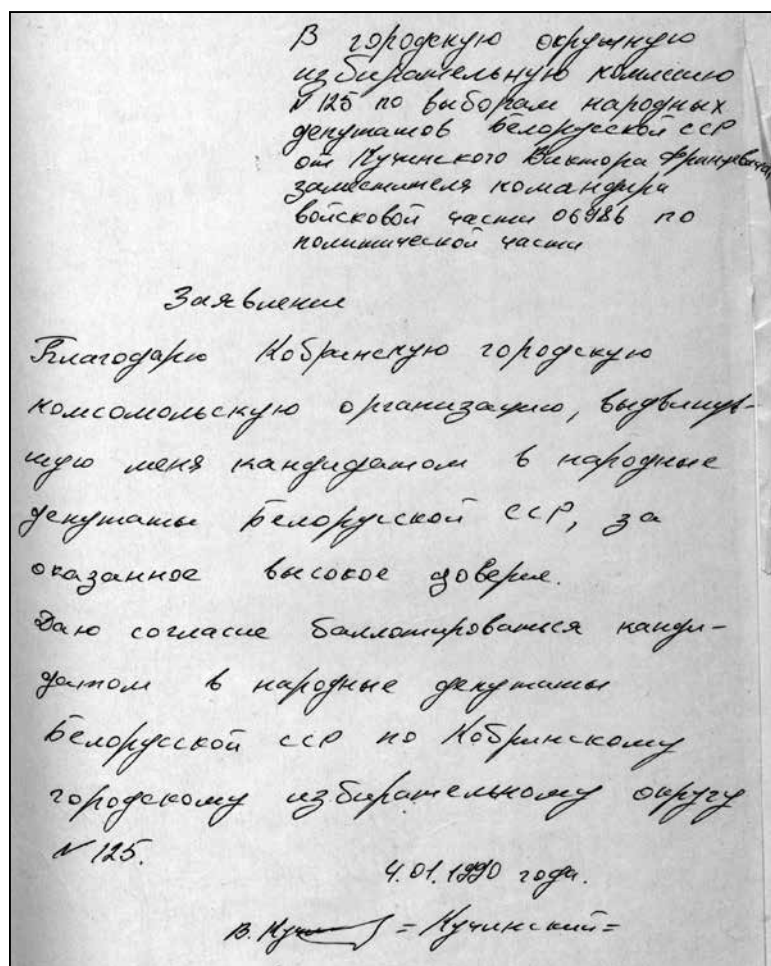 В городскую окружную
избирательную комиссию
N 125 по выборам народных
депутатов Белорусской ССР
от Кучинского Виктора Францевича,
заместителя командира
войсковой части 06986 по
политической части
Заявление
Благодарю Кобринскую городскую
комсомольскую организацию, выдвинув-
шую меня кандидатом в народные
депутаты Белорусской ССР, за
оказанное высокое доверие.
Даю согласие баллотироваться канди-
датом в народные депутаты
Белорусской ССР по Кобринскому
городскому избирательному округу
N 125.
4.01.1990 года.
В. Куч = Кучинский =